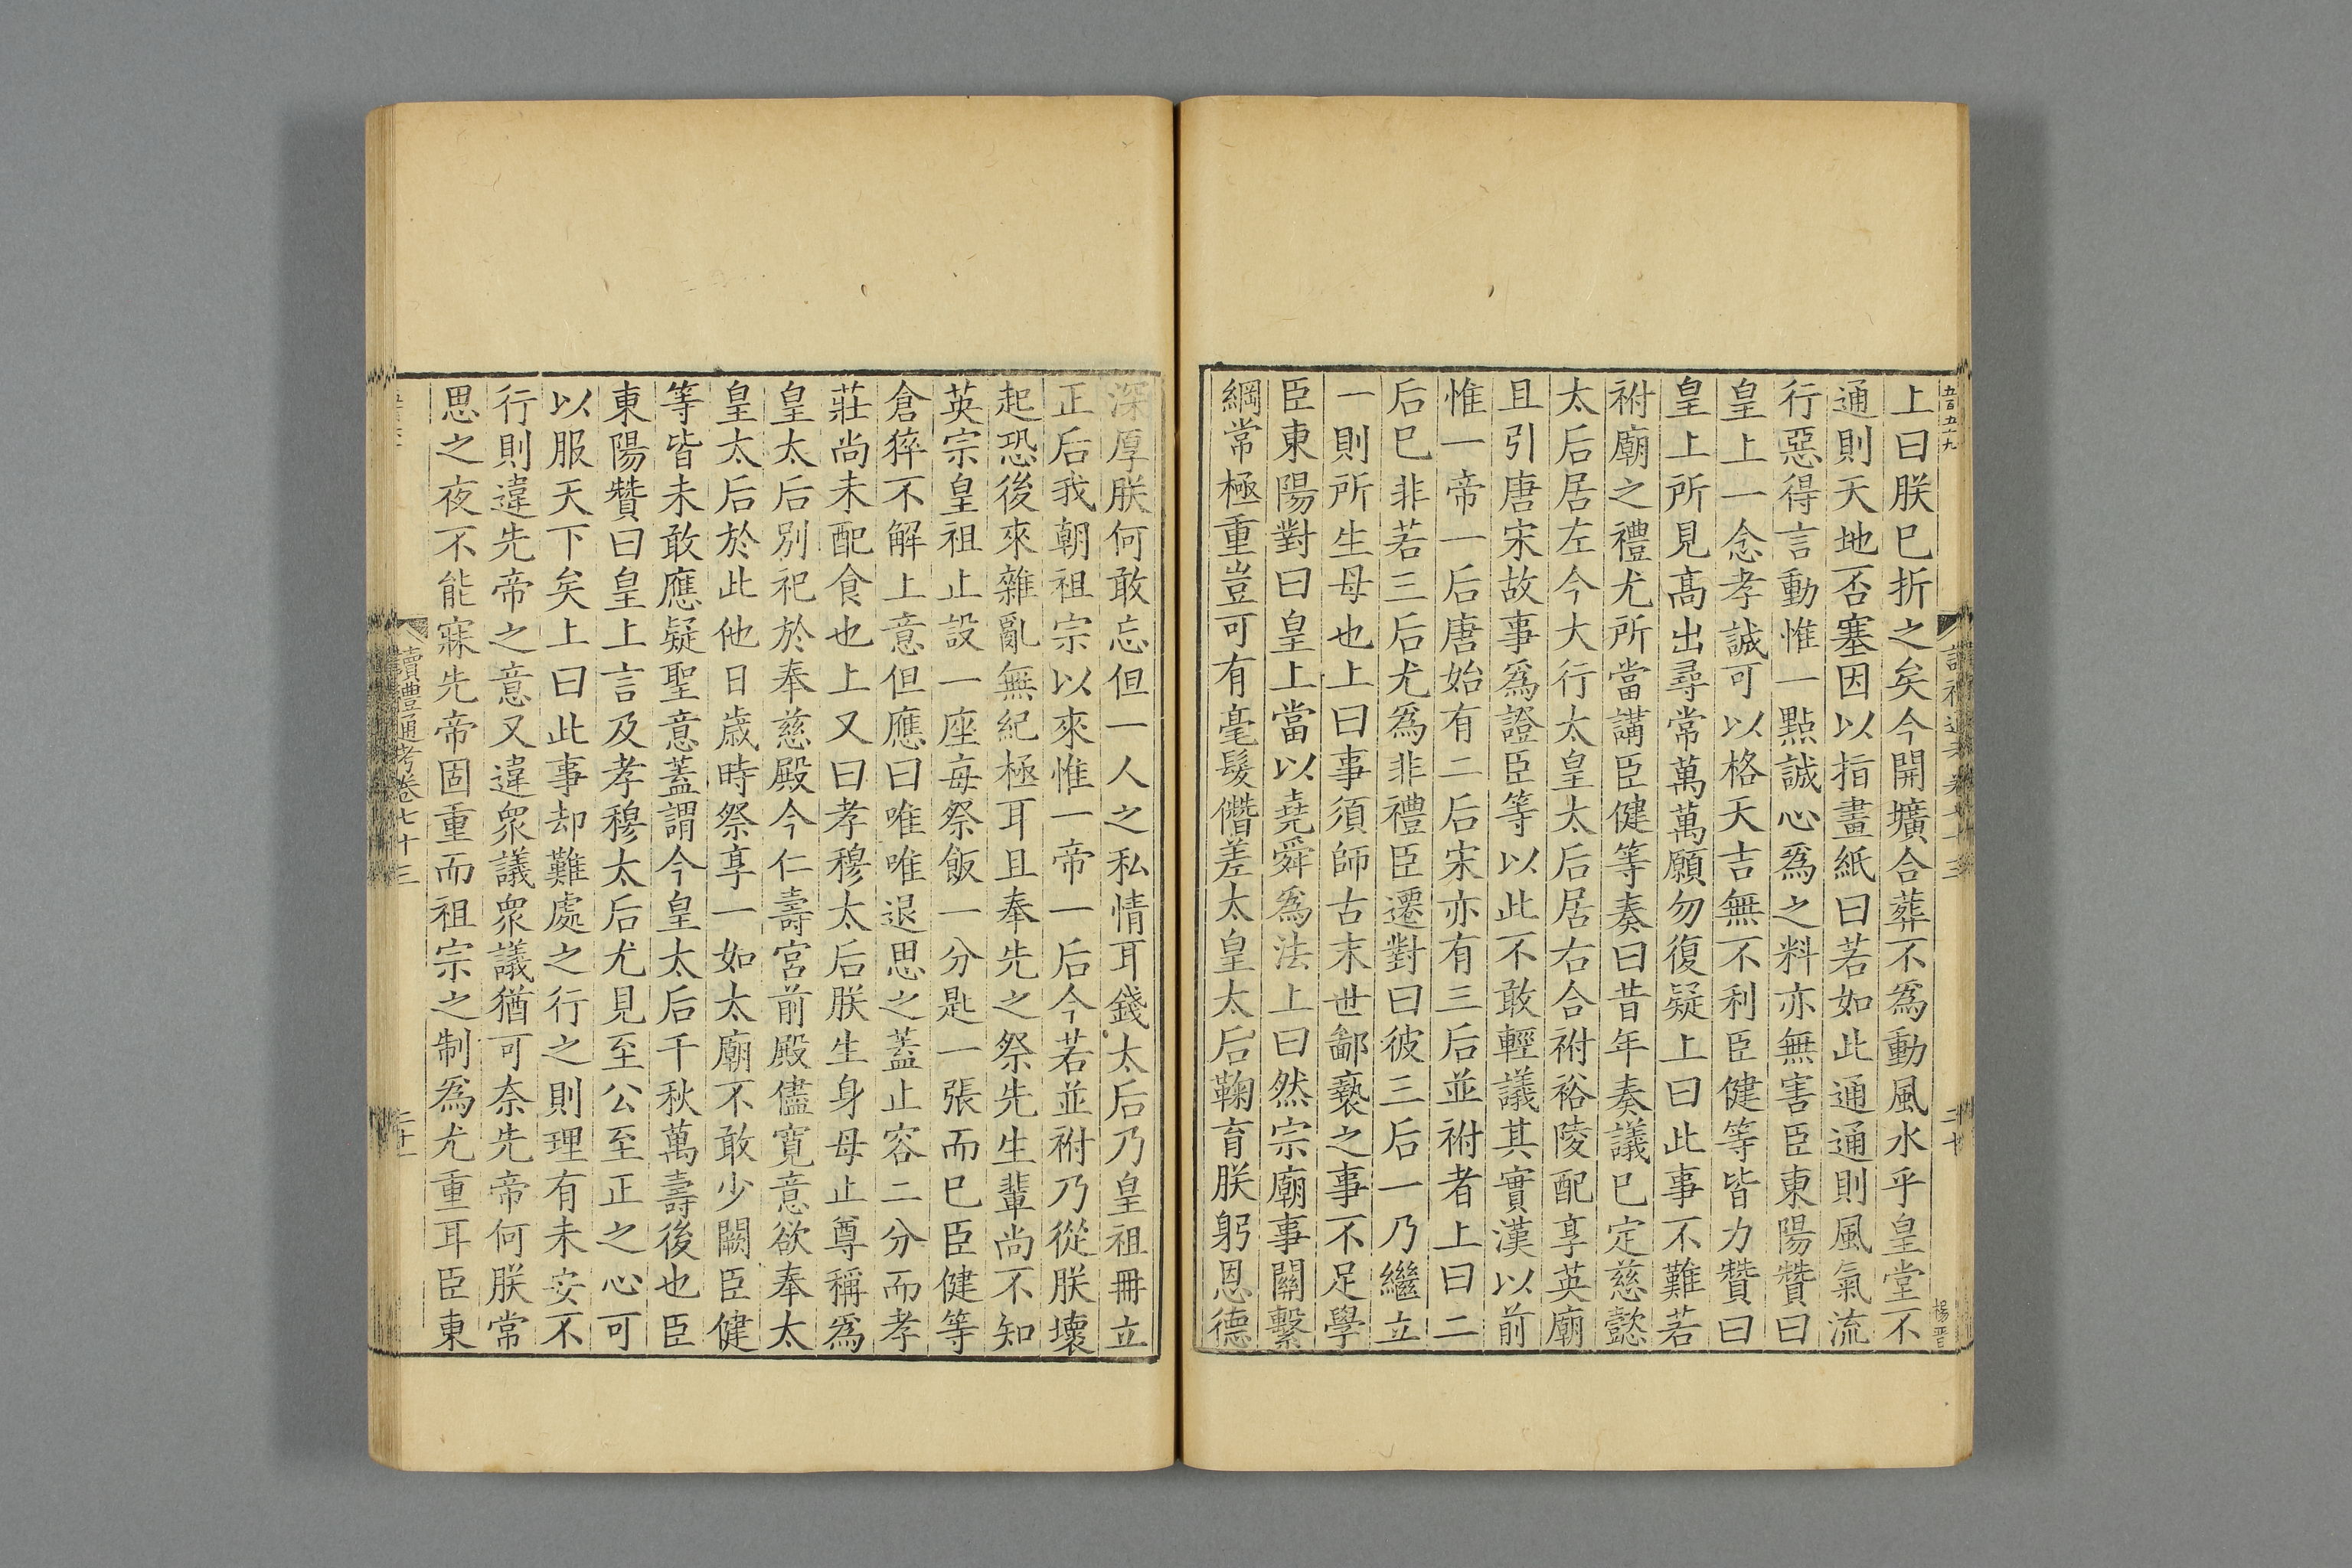 五百五十九
上曰朕已折之矣今開壙合葬不爲動風水乎皇堂不
通則天地否塞因以指畫紙曰若如此通通則風氣流
行惡得言動惟一點誠心爲之料亦無害臣東陽贊曰
皇上一念孝誠可以格天吉無不利臣健等皆力贊曰
皇上所見高出尋常萬萬願勿復疑上曰此事不難若
祔廟之禮尤所當講臣健等奏曰昔年奏議已定慈懿
太后居左今大行太皇太后居右合祔裕陵配享英廟
且引唐宋故事爲證臣等以此不敢輕議其實漢以前
惟一帝一后唐始有二后宋亦有三后並祔者上曰二
后已非若三后尤爲非禮臣遷對曰彼三后一乃繼立
一則所生母也上曰事須師古末世鄙褻之事不足學
臣東陽對曰皇上當以堯舜爲法上曰然宗廟事關繫
綱常極重豈可有毫髮僭差太皇太后鞠育朕躬恩德
楊晋
深厚朕何敢忘但一人之私情耳錢太后乃皇祖冊立
正后我朝祖宗以來惟一帝一后今若並祔乃從朕壞
起恐後來雜亂無紀極耳且奉先之祭先生輩尚不知
英宗皇祖止設一座每祭飯一分匙一張而已臣健等
倉猝不解上意但應曰唯唯退思之蓋止容二分而孝
莊尚未配食也上又曰孝穆太后朕生身母止尊稱爲
皇太后別祀於奉慈殿今仁壽宮前殿儘寬意欲奉太
皇太后於此他日歲時祭享一如太廟不敢少闕臣健
等皆未敢應疑聖意蓋謂今皇太后千秋萬壽後也臣
東陽贊曰皇上言及孝穆太后尤見至公至正之心可
以服天下矣上曰此事却難處之行之則理有未安不
行則違先帝之意又違衆議衆議猶可奈先帝何朕常
思之夜不能寐先帝固重而祖宗之制爲尤重耳臣東
讀禮通考卷七十三